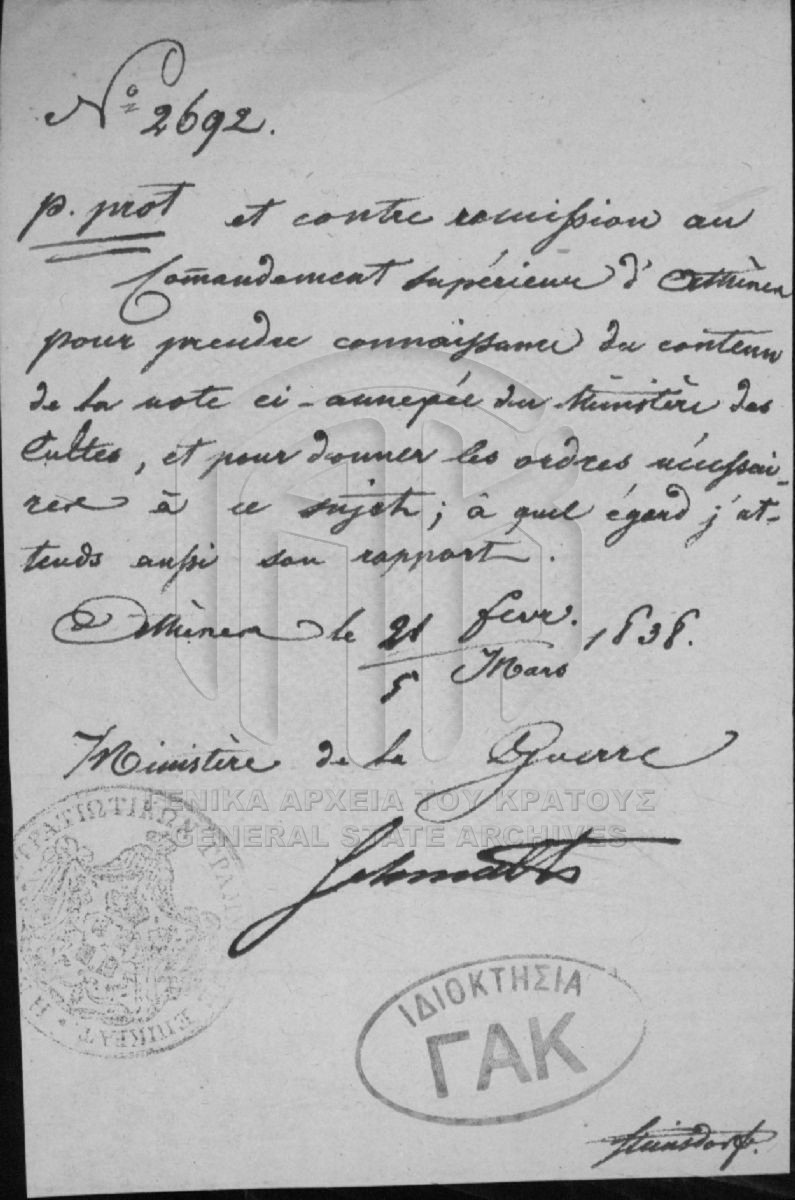 No 2692.
p. prot et contre remission au
Commandement supérieur d'Athènes
pour prendre connaissance du contenu
de la note ci-annexée du Ministère des
Cultes, et pour donner les ordres nécessai-
res à ce sujet; à quel égard j'at-
tends aussi son rapport.
Athènes le 21 fevr. 1838.
5 Mars
Ministère de la Guerre
ΓΕΝΙΚΑ ΑΡΧΕΙΑ ΤΟΥ ΚΡΑΤΟΥΣ
GENERAL STATE ARCHIVES
Schmaltz
ΣΤΡΑΤΙΩΤΙΚΩΝ
ΕΠΙΚΡΑΤ
ΙΔΙΟΚΤΗΣΙΑ
ΓΑΚ
Steinsdorf.